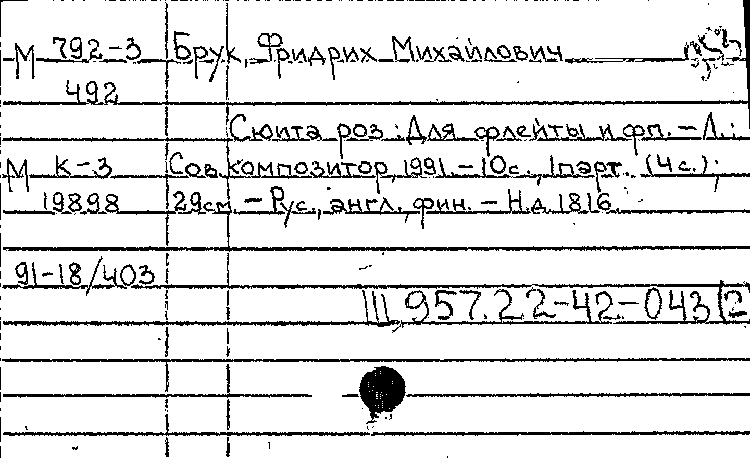 М 792-3 Брук, Фридрих Михайлович
492
Сюита роз : Для флейты и фп. - Л. :
М К-3 Сов. композитор, 1991. - 10 с., 1 парт. (4 с.) ;
19898 29 см. - Рус., англ., фин. - Н.д. 1816.
91-18/403
Ш 957.22-42-043(2